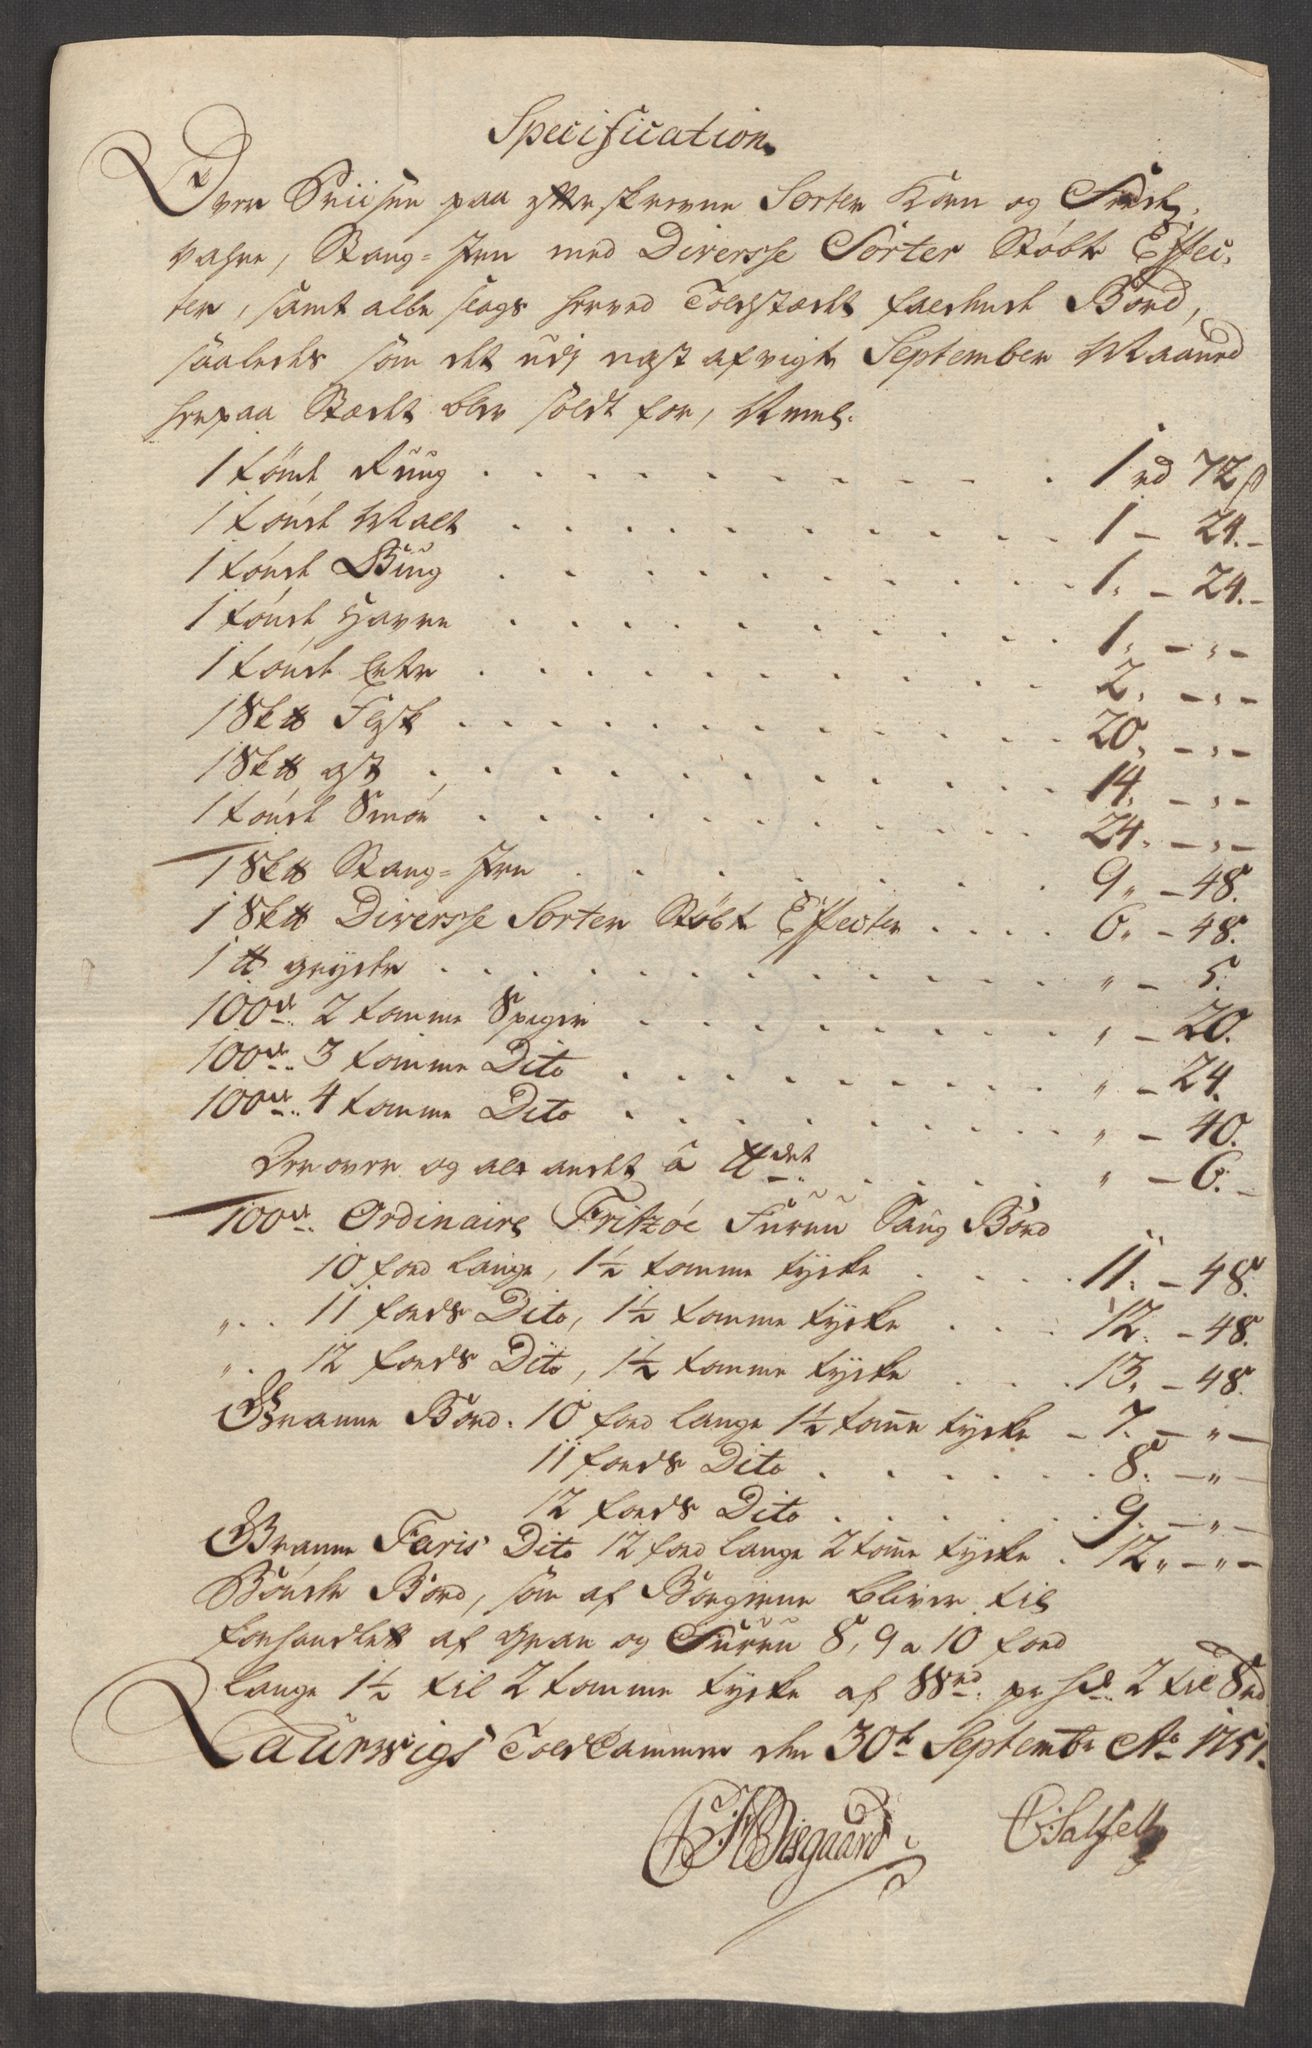 Specification
Over Priisene paa efterskrevne Sorter Korn og Fede
vahre, Stang-Jern med Diversse Sorter Støbte Effec-
ter, samt alle slags herved Toldstædet faldende Bord,
saaledes som det udj nest afvigte September Maaned
herpaa Stædet blev soldt for, Neml.
1 tønde Rüug . . . 1 rd 72 ß
1 tønde Malt . . . 1 - 24. -
1 tønde Büug . . . 1. - 24. -
1 tønde Havre . . . 1. - " -
1 tønde Erter . . . 2. - " -
1 Sk℔ Flesk . . . 20. - " -
1 Sk℔ ost . . . 14. - " -
1 tønde Smør . . . 24. - " -
1 Sk℔ Stang-Jern . . . 9. - 48.
1 Sk℔ Diversse Sorter Støbte Effecter . . . 6. - 48.
1 ℔ gryder . . . " - 5.
100de 2 tomme Spiger . . . " - 20.
100de 3 tomme Dito . . . " - 24.
100de 4 tomme Dito . . . " - 40.
Derover og alt andet â ℔det . . . " - 6. -
100de Ordinaire Fritzøe Furru Saug Bord
10 fod lange, 1½ tomme tycke . . . 11. - 48.
" . . 11 fods Dito, 1½ tomme tycke . . . 12. - 48.
" . . 12 fods Dito, 1½ tomme tycke . . . 13. - 48.
Granne Bord. 10 fod lange 1½ tom̄e tycke - 7. - " -
11 fods Dito . . . 8. - " -
12 fods Dito . . . 9. - " -
Granne Faris Dito 12 fod lange 2 tom̄e tycke . 12. - " -
Bønder Bord, som af Borgerne bliver til
forhandlett af gran og Furru 8, 9 a 10 fod
lange 1½ til 2 tomme tycke af pr 2 til 8 rd
Laurwigs Toldkammer den 30te Septembr Ao 1751.
Bisgaard C: Salfelt